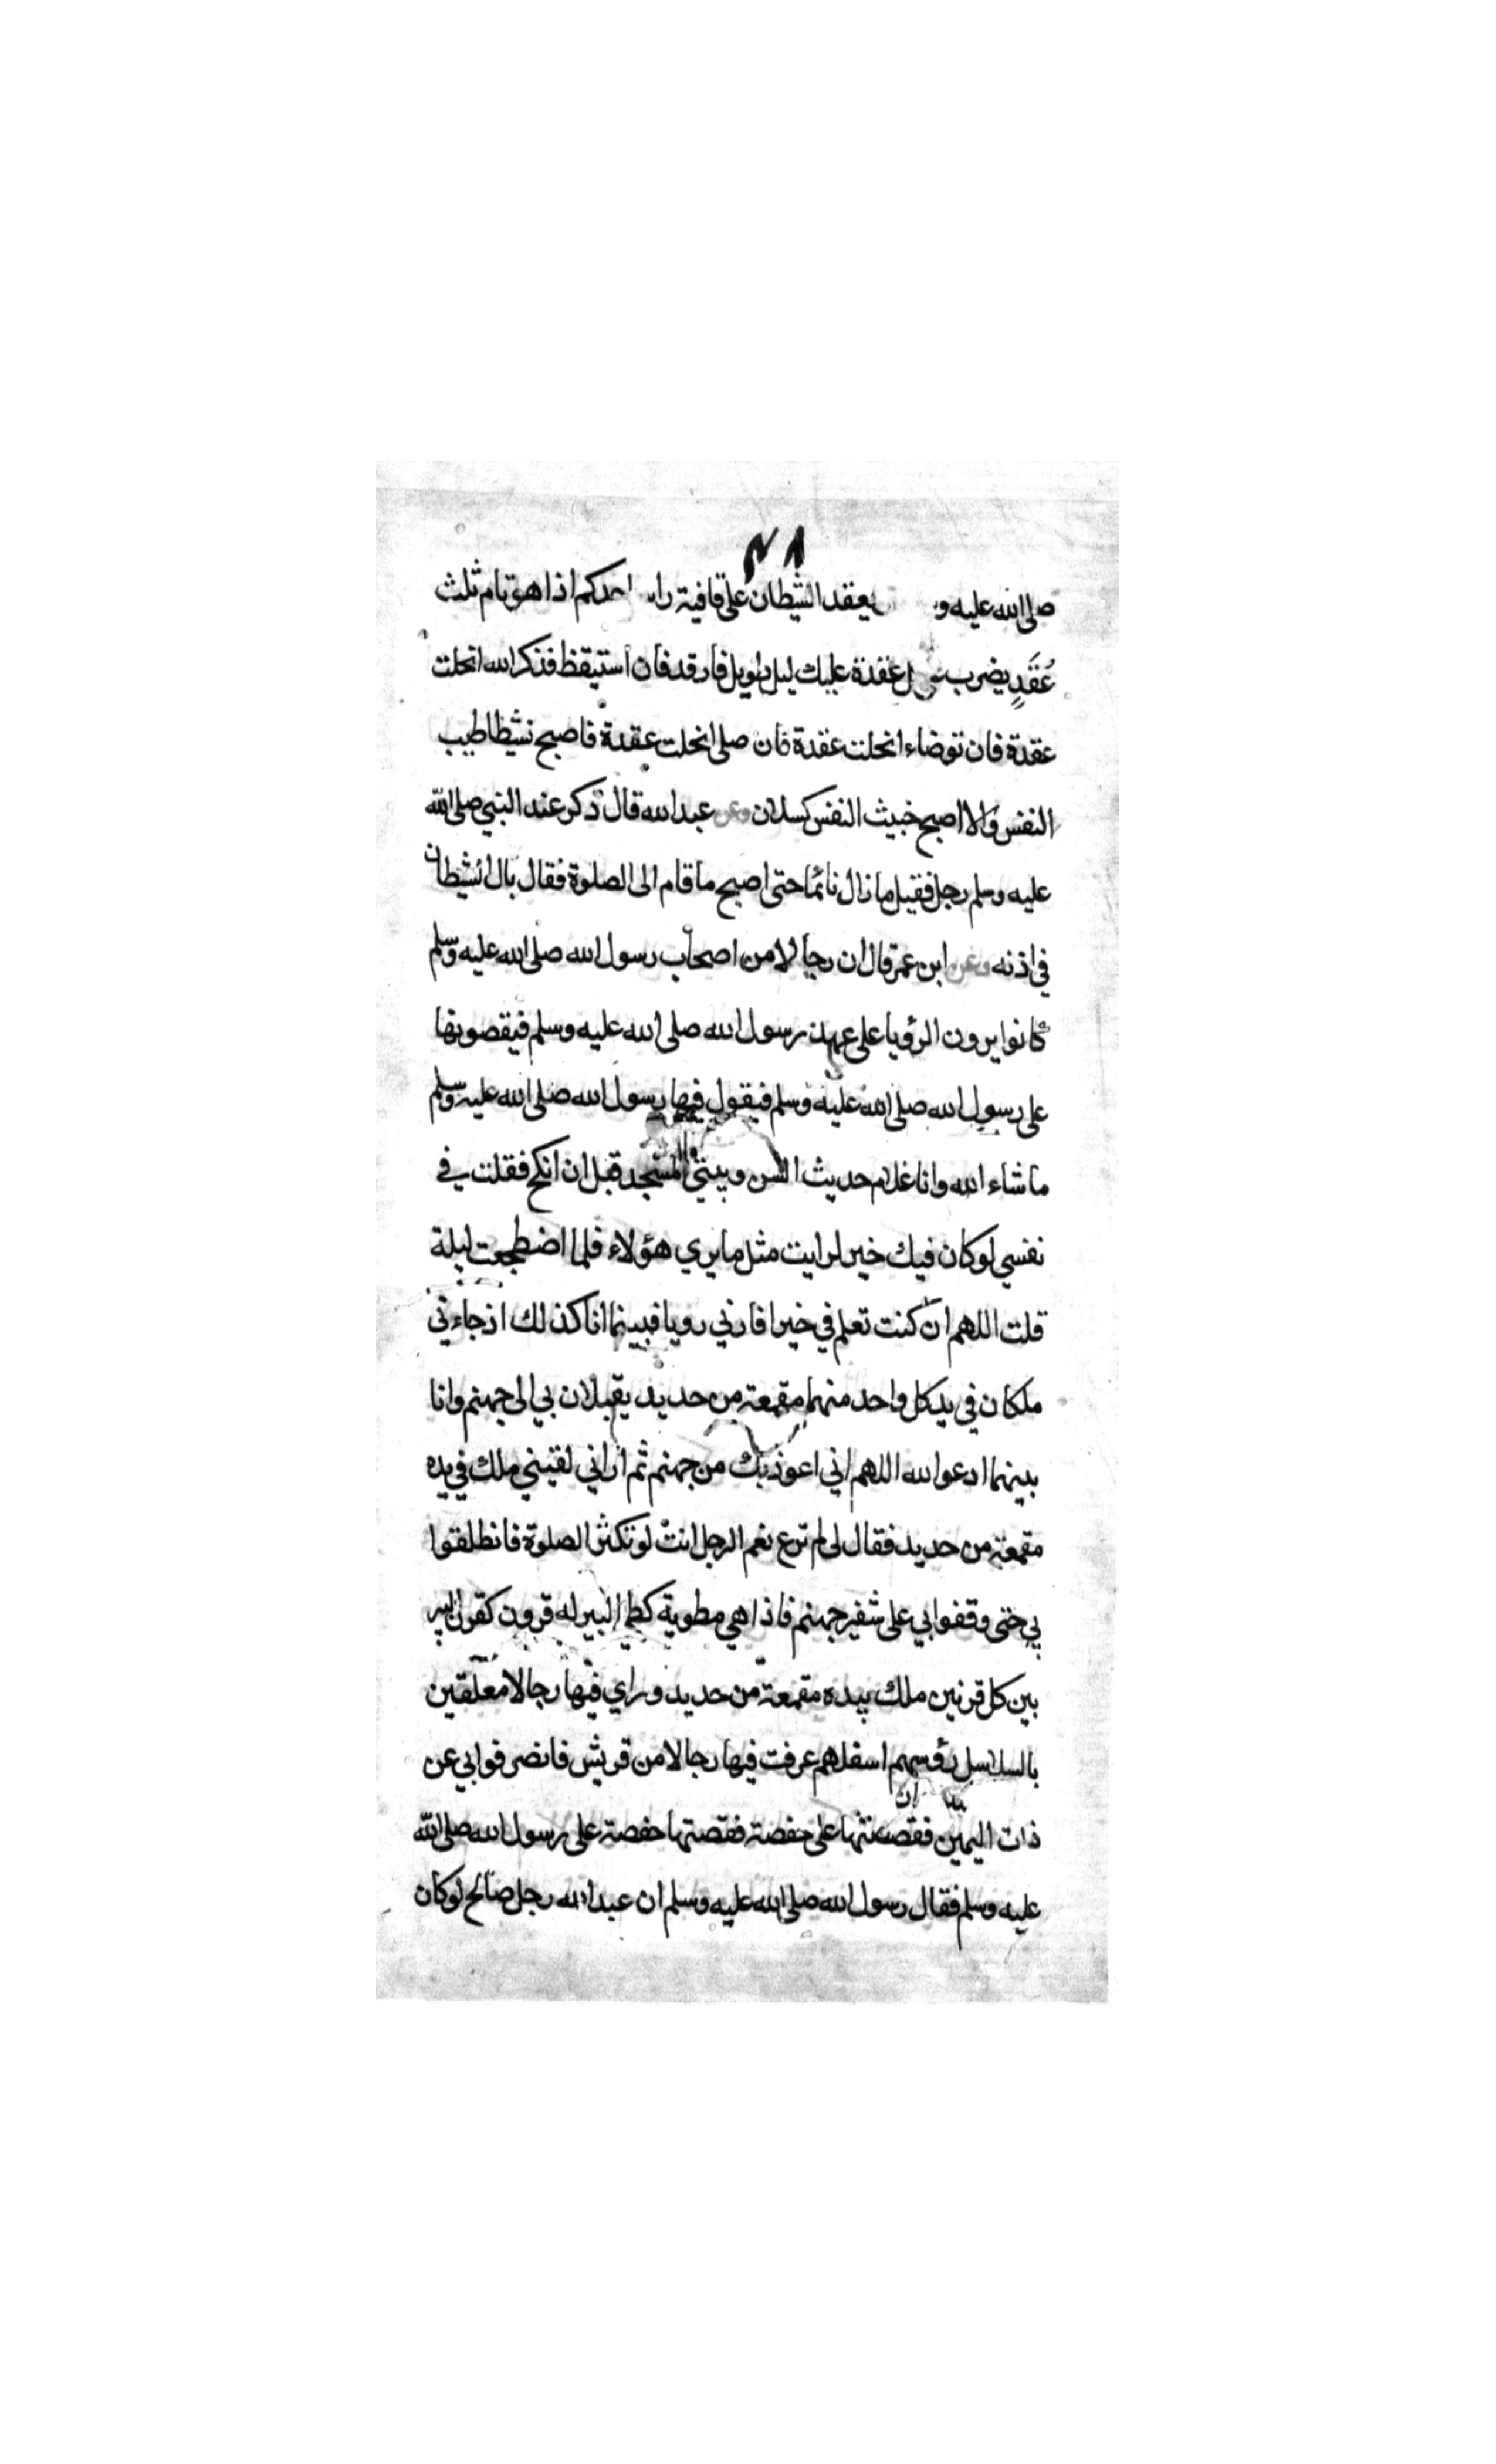 ٤٨
صلى الله عليه و يعقد الشيطان على قافية راس احدكم اذا هو نام ثلث
عُقَدٍ يضرب كل عقدة عليك ليل طويل فارقد فان استيقظ فذكر الله انحلت
عقدة فان توضاء انحلت عقدة فان صلى انحلت عقدة فاصبح نشيطا طيب
النفس والا اصبح خبيث النفس كسلان وعن عبد الله قال ذكر عند النبي صلى الله
عليه وسلم رجل فقيل ما زال نائما حتى اصبح ما قام الى الصلوة فقال بال الشيطان
في اذنه وعن ابن عمر قال ان رجالا من اصحاب رسول الله صلى الله عليه وسلم
كانوا يرون الرؤيا على عهد رسول الله صلى الله عليه وسلم فيقصونها
على رسول الله صلى الله عليه وسلم فيقول فيها رسول الله صلى الله عليه وسلم
ما شاء الله وانا غلام حديث السن وبيتي المسجد قبل ان انكح فقلت في
نفسي لو كان فيك خير لرايت مثل ما يري هؤلاء فلما اضطجعت ليلة
قلت اللهم ان كنت تعلم في خيرا فارني رويا فبينما انا كذلك اذ جاءني
ملكان في يد كل واحد منهما مقمعة من حديد يقبلان بي الى جهنم وانا
بينهما ادعو الله اللهم اني اعوذ بك من جهنم ثم اراني لقيني ملك في يده
مقمعة من حديد فقال لي لم ترع نعم الرجل انت لو تكثر الصلوة فانطلقوا
بي حتى وقفوا بي على شفير جهنم فاذا هي مطوية كطي البير له قرون كقرن البير
بين كل قرنين ملك بيده مقمعة من حديد وراي فيها رجالا معلقين
بالسلاسل رؤسهم اسفلهم عرفت فيها رجالا من قريش فانصرفوا بي عن
ذات اليمين فقصصتها على حفصة فقصتها حفصة على رسول الله صلى الله
عليه وسلم فقال رسول الله صلى الله عليه وسلم ان عبد الله رجل صالح لو كان